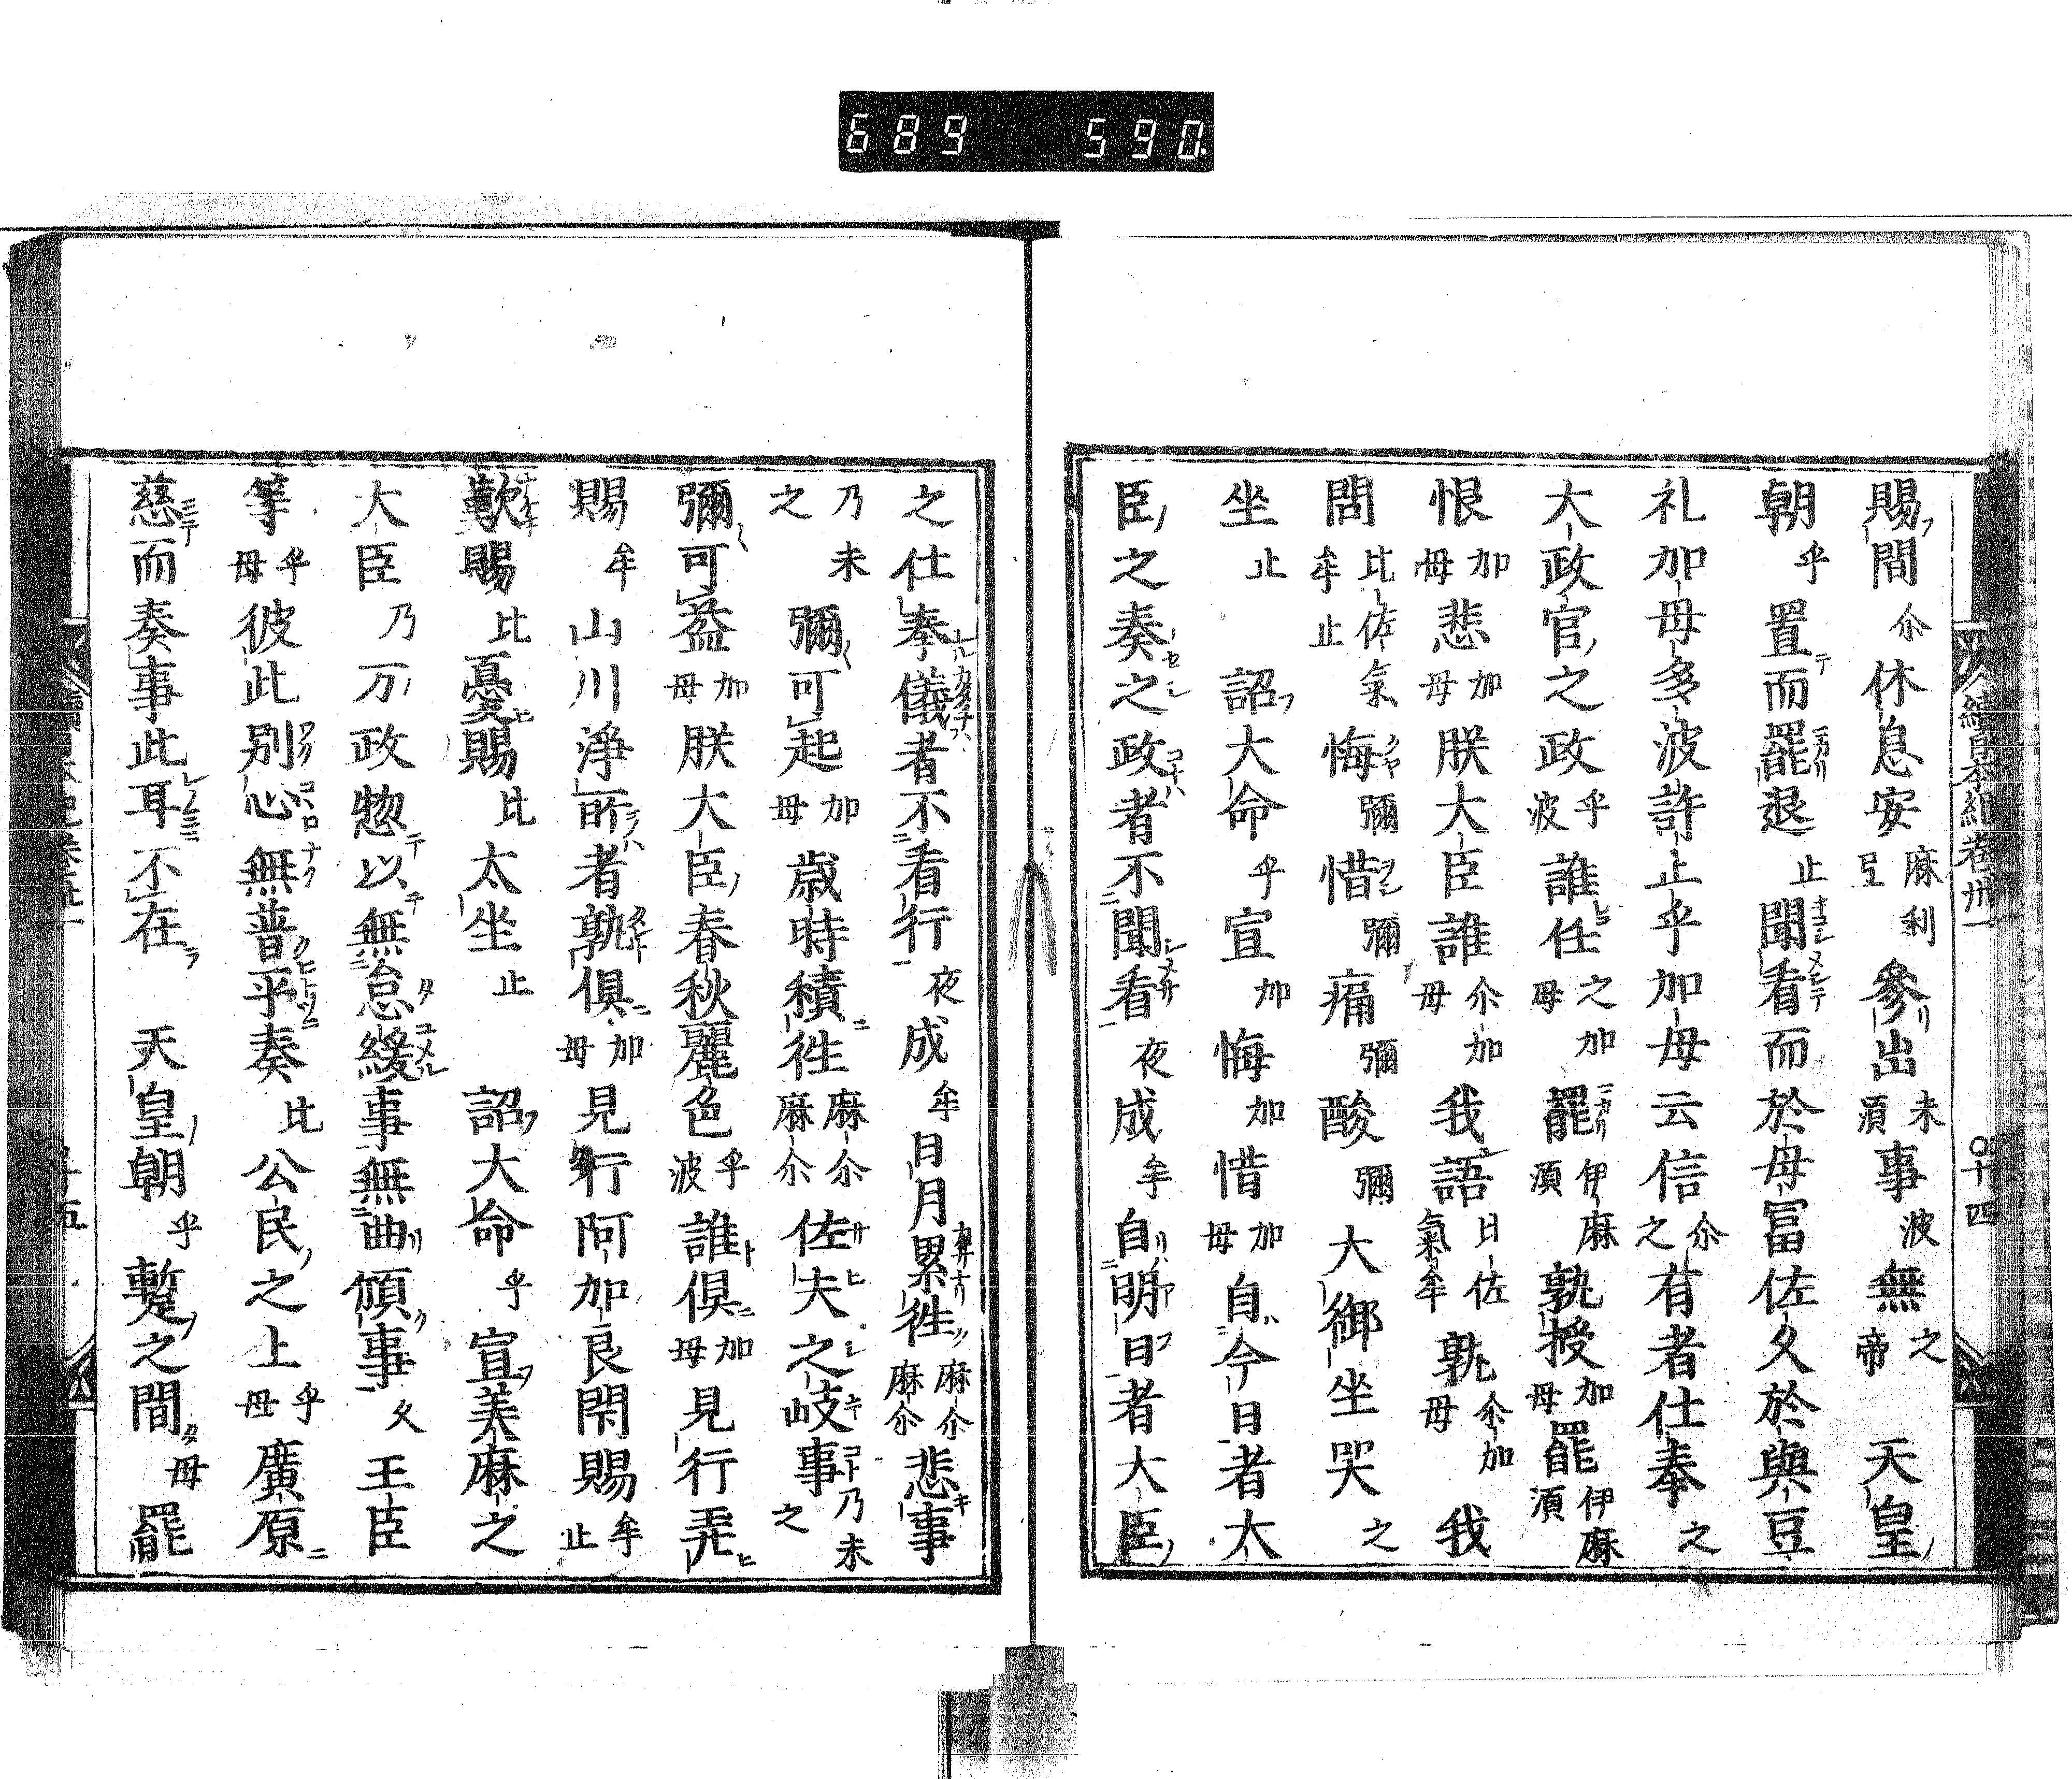 689 590.
續日本紀卷卅一 十四
賜間尒休息安麻利弖參出未須事波無之帝 天皇
朝乎置而罷退止聞看而於母富佐久於與豆
礼加母多波許止乎加母云信尒之有者仕奉之
大政官之政乎波誰任之加母罷伊麻須孰授加母罷伊麻須
恨加母悲加母朕大臣誰尒加母我語比佐氣牟孰尒加母我
問比佐氣牟止悔彌惜彌痛彌酸彌大御坐哭之
坐止 詔大命乎宣加悔加惜加母自今日者太
臣之奏之政者不聞看夜成牟自明日者大臣
之仕奉儀者不看行夜成牟日月累徃麻麻尒尒悲事
乃未之彌可起加母歳時積徃麻麻尒尒佐夫之岐事乃未之
彌可益加母朕大臣春秋麗色乎波誰俱加母見行弄
賜牟山川淨所者孰俱加母見行阿加良閇賜牟止
歎賜比憂賜比太坐止 詔大命乎宣美麻之
大臣乃万政惣以無怠緩事無曲傾事久王臣
等乎母彼此別心無普平奏比公民之上乎母廣原
慈而奏事此耳不在 天皇朝乎蹔之間母罷